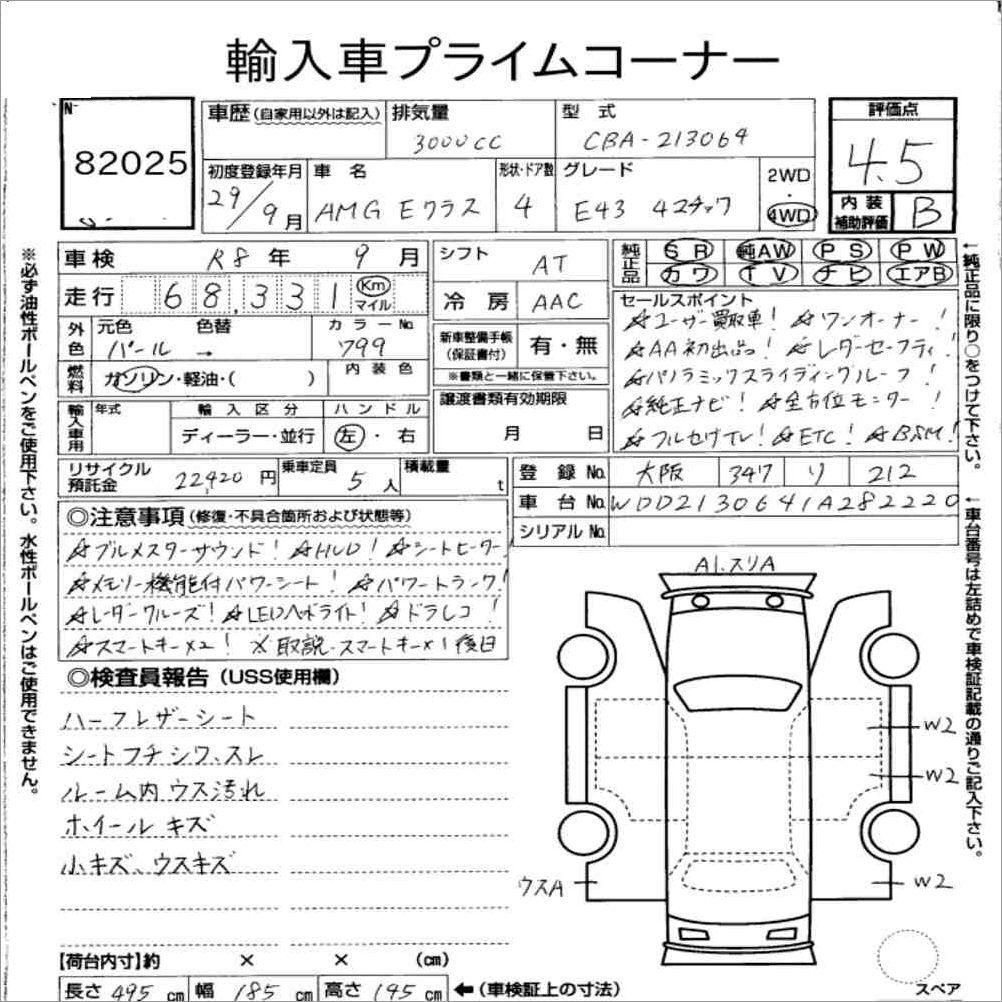 輸入車プライムコーナー
No
82025
車歴(自家用以外は記入)
排気量
3000cc
型式
CBA-213064
評価点
4.5
初度登録年月
29/9月
車名
AMG Eクラス
形状・ドア数
4
グレード
E43 4マチック
2WD
・
4WD
内装
補助評価
B
車検 R8年 9月
走行 68,331 Km
マイル
シフト AT
冷房 AAC
純正品
SR 純AW PS PW
カワ TV ナビ エアB
外色
元色 色替
パール →
カラーNo.
799
燃料
ガソリン・軽油・( )
内装色
新車整備手帳
(保証書付)
有・無
※書類と一緒に保管下さい。
セールスポイント
☆ユーザー買取車! ☆ワンオーナー!
☆AA初出品! ☆レーダーセーフティ!
☆パノラミックスライディングルーフ!
☆純正ナビ! ☆全方位モニター!
☆フルセグTV! ☆ETC! ☆BSM!
輸入車用
年式
輸入区分
ディーラー・並行
ハンドル
左・右
譲渡書類有効期限
月 日
リサイクル
預託金
22,920円
乗車定員
5人
積載量
t
登録No. 大阪 347 リ 212
車台No. WDD2130641A282220
シリアルNo.
◎注意事項(修復・不具合箇所および状態等)
☆ブルメスターサウンド! ☆HUD! ☆シートヒーター!
☆メモリー機能付パワーシート! ☆パワートランク!
☆レーダークルーズ! ☆LEDヘッドライト! ☆ドラレコ!
☆スマートキー×2! ※取説・スマートキー×1後日
◎検査員報告(USS使用欄)
ハーフレザーシート
シートフチシワ、スレ
ルーム内ウス汚れ
ホイールキズ
小キズ、ウスキズ
A1.スリA
W2
W2
ウスA
W2
スペア
【荷台内寸】約 × × (cm)
長さ 495cm 幅 185cm 高さ 145cm ←(車検証上の寸法)
※必ず油性ボールペンをご使用下さい。水性ボールペンはご使用できません。
←純正品に限り○をつけて下さい。
←車台番号は左詰めで車検証記載の通りご記入下さい。